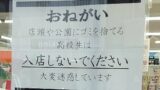 おねがい
店頭や公園にゴミを捨てる
高校生は
入店しないでください
大変迷惑しています